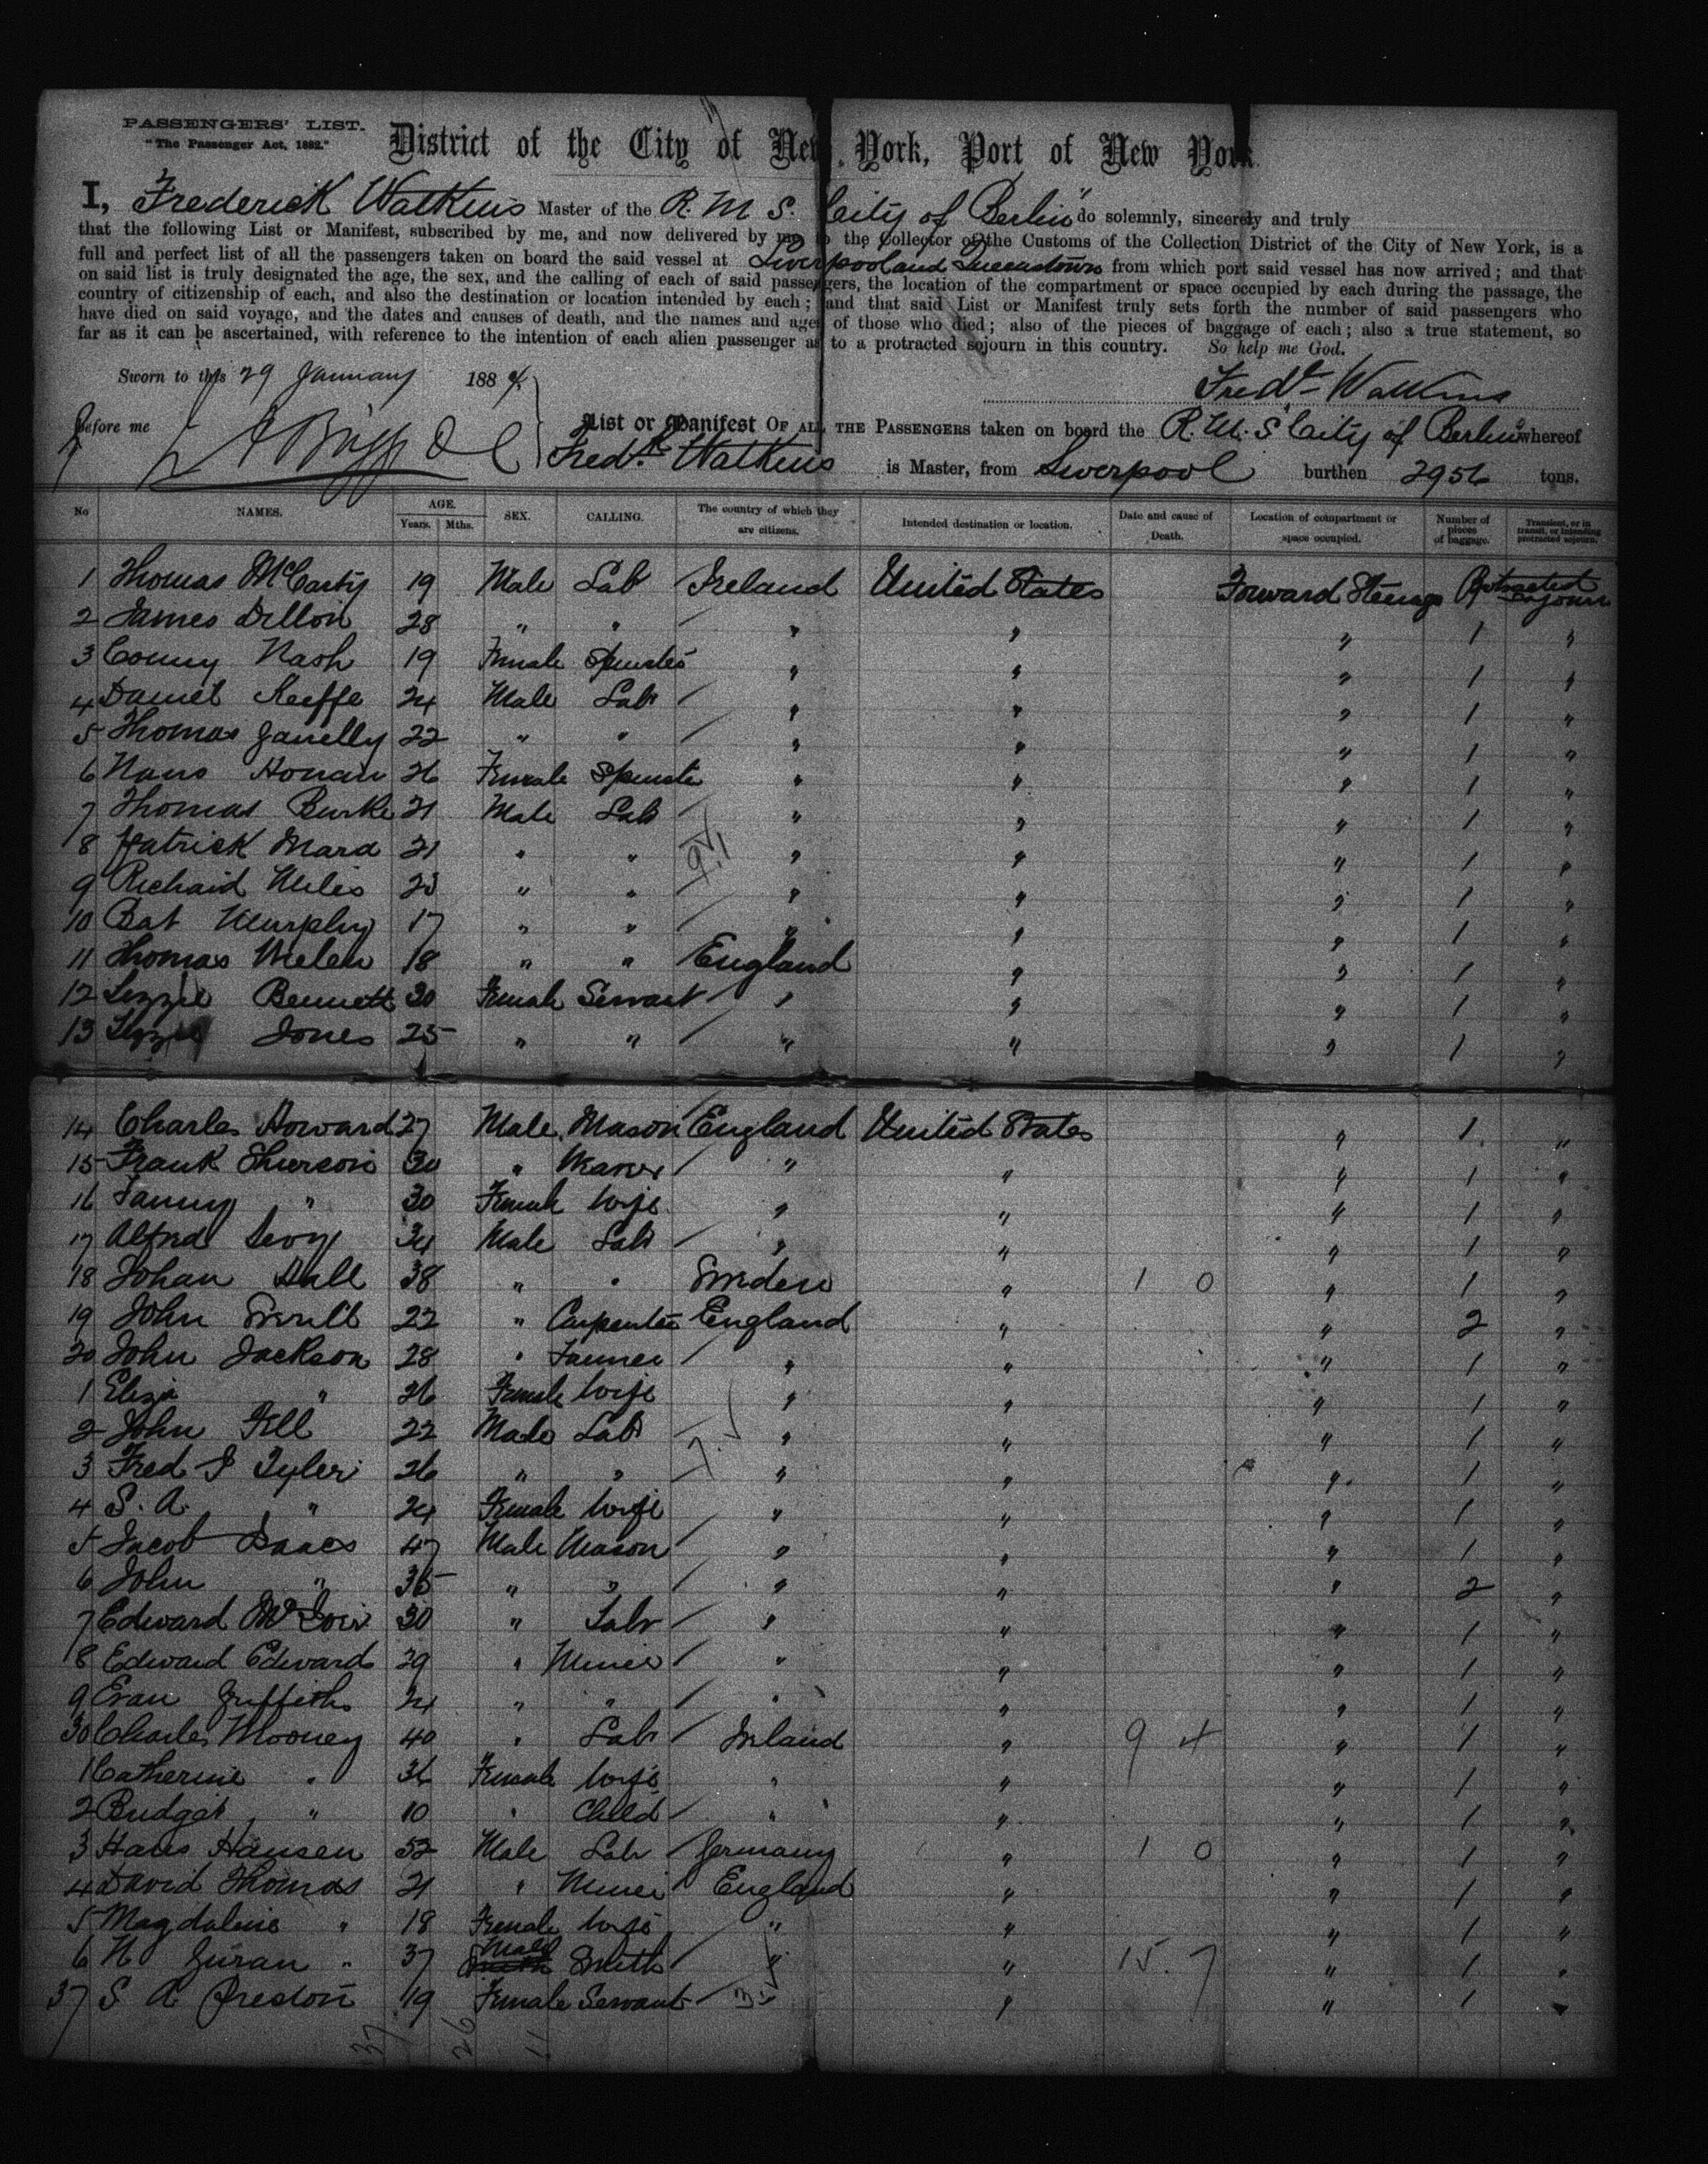 PASSENGERS' LIST.
"The Passenger Act, 1882."
District of the City of New York, Port of New York
I, Frederick Watkins Master of the R. M. S. "City of Berlin" do solemnly, sincerely and truly
that the following List or Manifest, subscribed by me, and now delivered by me to the Collector of the Customs of the Collection District of the City of New York, is a
full and perfect list of all the passengers taken on board the said vessel at Liverpool and Queenstown from which port said vessel has now arrived; and that
on said list is truly designated the age, the sex, and the calling of each of said passengers, the location of the compartment or space occupied by each during the passage, the
country of citizenship of each, and also the destination or location intended by each; and that said List or Manifest truly sets forth the number of said passengers who
have died on said voyage, and the dates and causes of death, and the names and ages of those who died; also of the pieces of baggage of each; also a true statement, so
far as it can be ascertained, with reference to the intention of each alien passenger as to a protracted sojourn in this country. So help me God.
Sworn to this 29 January 1884
Fredk Watkins
Before me
List or Manifest OF ALL THE PASSENGERS taken on board the R.M.S "City of Berlin" whereof
Fredk Watkins is Master, from Liverpool burthen 2956 tons.
No NAMES. AGE. Years. Mths. SEX. CALLING. The country of which they are citizens. Intended destination or location. Date and cause of Death. Location of compartment or space occupied. Number of pieces of baggage. Transient, or in transit, or intending protracted sojourn.
1 Thomas McCarty 19 Male Lab Ireland United States Forward Steerage Protracted Sojourn
2 James Dillon 28 " " " " " 1 "
3 Nash 19 Female Spinster " " " 1 "
4 Daniel Keeffe 24 Male Lab " " " 1 "
5 Thomas 22 " " " " " 1 "
6 Honan 26 Female Spinster " " " 1 "
7 Thomas Burke 21 Male Lab " " " 1 "
8 Patrick Mara 21 " " " " " 1 "
9 Richard 23 " " " " " 1 "
10 Bat Murphy 17 " " " " " 1 "
11 Thomas 18 " " England " " 1 "
12 Lizzie Bennett 30 Female Servant " " " 1 "
13 Lizzie Jones 25 " " " " " 1 "
14 Charles Howard 27 Male Mason England United States " 1 "
15 Frank 30 " " " " 1 "
16 Fanny " 30 Female Wife " " " 1 "
17 Alfred Levy 34 Male Lab " " " 1 "
18 Johan Dall 38 " " Sweden " 1 0 " 1 "
19 John 22 " Carpenter England " " 2 "
20 John Jackson 28 " " " " 1 "
1 Eliza " 26 Female Wife " " " 1 "
2 John 22 Male Lab " " " 1 "
3 Fred J Tyler 26 " " " " " 1 "
4 S. A. " 24 Female Wife " " " 1 "
5 Jacob Isaacs 47 Male Mason " " " 1 "
6 John " 35 " " " " " 2 "
7 Edward 30 " Lab " " " 1 "
8 Edward Edward 29 " Miner " " " 1 "
9 Evan Griffiths 24 " " " " " 1 "
30 Charles Mooney 40 " Lab Ireland " 9 4 " 1 "
1 Catherine " 36 Female Wife " " " 1 "
2 Bridget " 10 " Child " " " 1 "
3 Hans Hansen 52 Male Lab Germany " 1 0 " 1 "
4 David Thomas 21 " Miner England " " 1 "
5 Magdaline " 18 Female Wife " " " 1 "
6 37 Male Smith " " 15 7 " 1 "
37 S A Preston 19 Female Servant " " 1 "
37 26 11